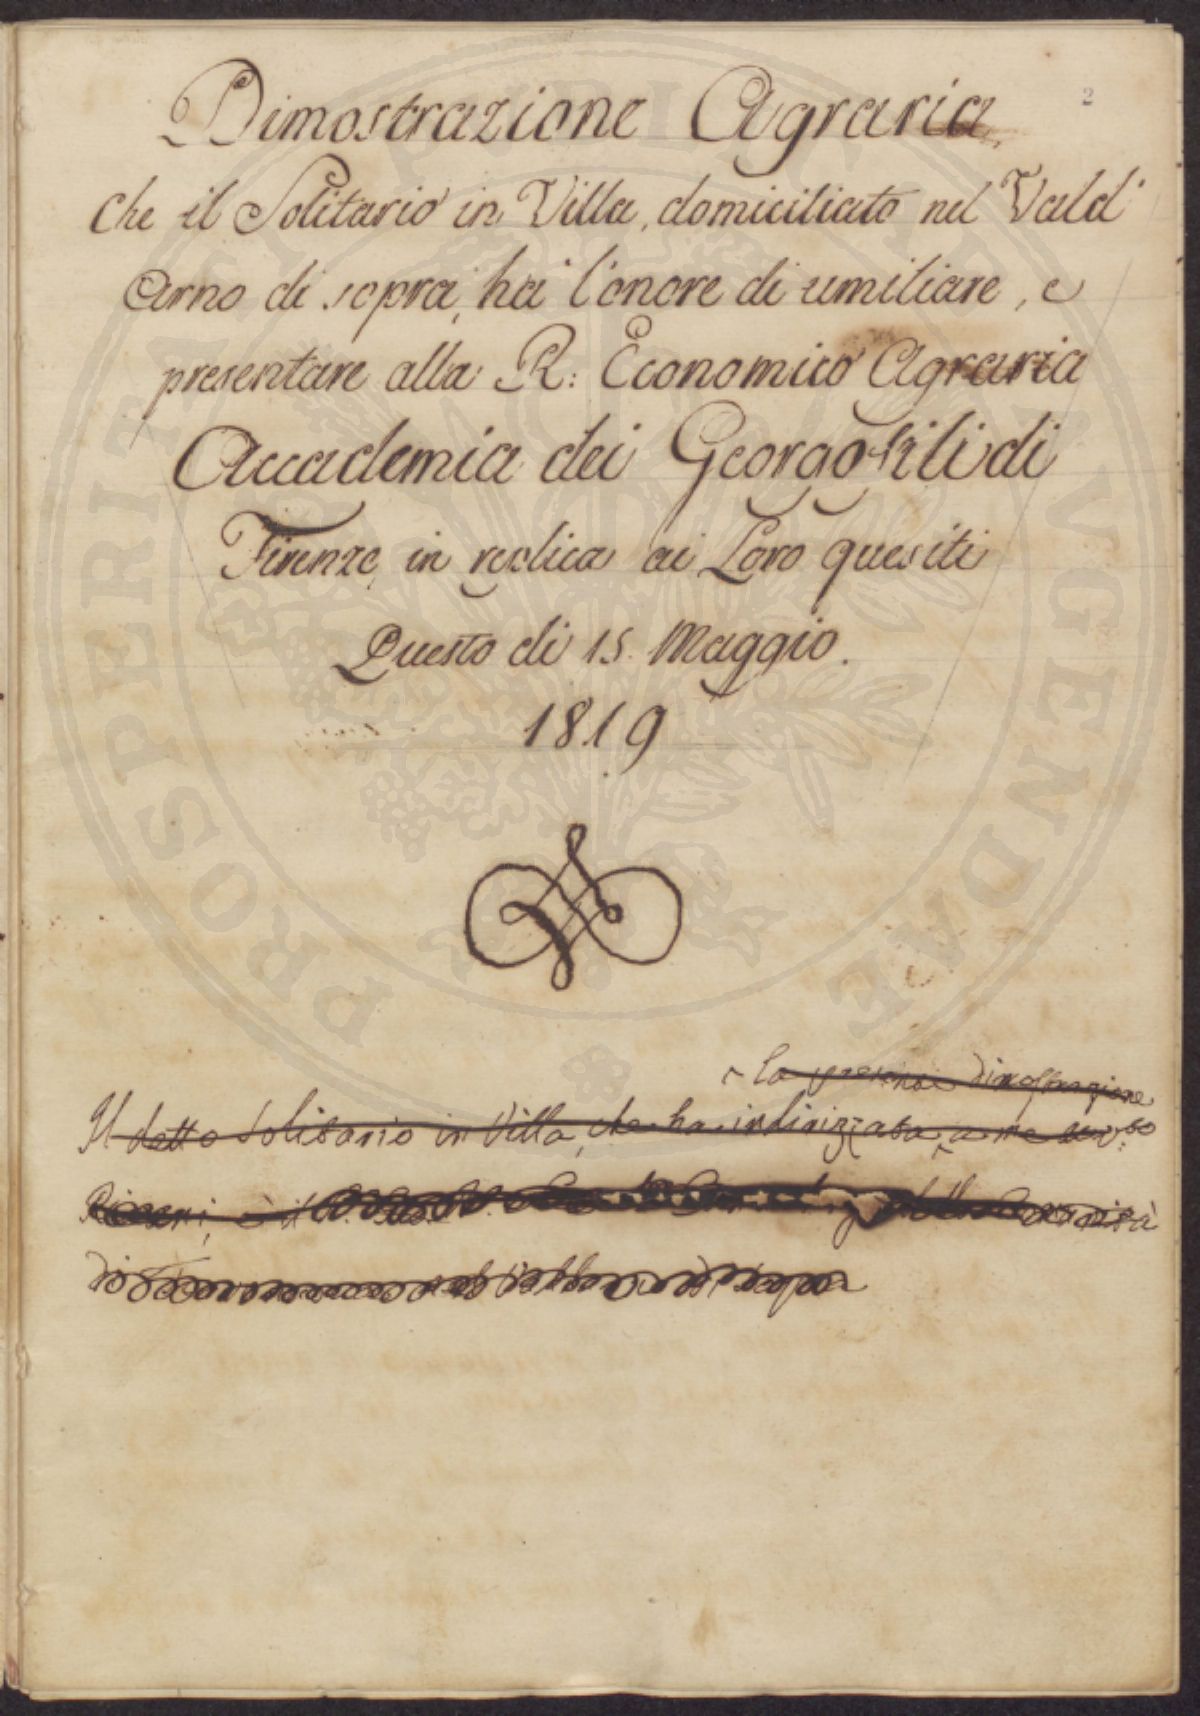 2
Dimostrazione Agraria
Che il Solitario in Villa, domiciliato nel Vald'
Arno di sopra, ha l'onore di umiliare, e
presentare alla R: Economico Agraria
Accademia dei Georgofili di
Firenze, in replica ai Loro quesiti
Questo di 15. Maggio.
1819
la presente Dimostrazione
Il detto Solitario in Villa, che ha indirizzata, a me
è il
di
PROSPERITATI PUBLICAE AUGENDAE